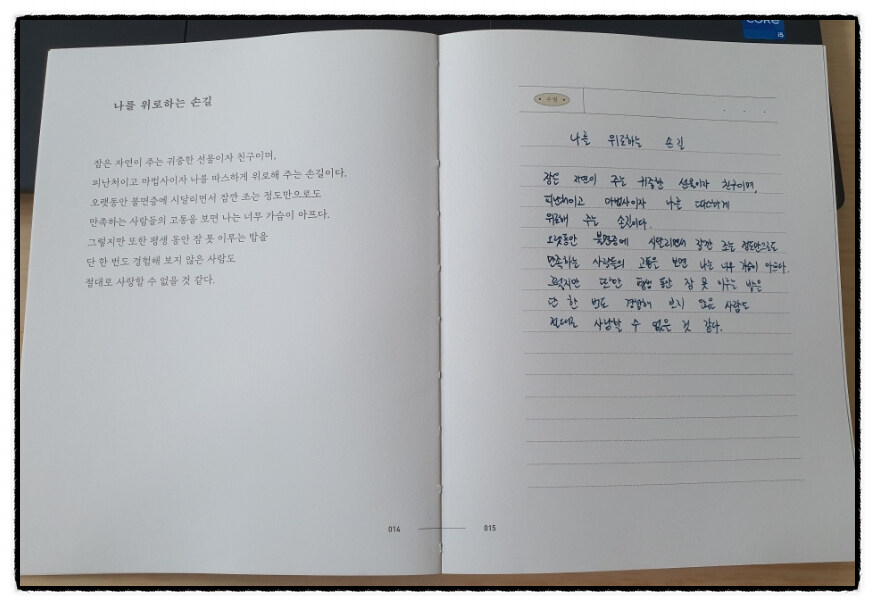 나를 위로하는 손길
잠은 자연이 주는 귀중한 선물이자 친구이며,
피난처이고 마법사이자 나를 따스하게 위로해 주는 손길이다.
오랫동안 불면증에 시달리면서 잠깐 조는 정도만으로도
만족하는 사람들의 고통을 보면 나는 너무 가슴이 아프다.
그렇지만 또한 평생 동안 잠 못 이루는 밤을
단 한 번도 경험해 보지 않은 사람도
절대로 사랑할 수 없을 것 같다.
014
CORE
i5
수필
나를 위로하는 손길
잠은 자연이 주는 귀중한 선물이자 친구이며,
피난처이고 마법사이자 나를 따스하게
위로해 주는 손길이다.
오랫동안 불면증에 시달리면서 잠깐 조는 정도만으로도
만족하는 사람들의 고통을 보면 나는 너무 가슴이 아프다.
그렇지만 또한 평생 동안 잠 못 이루는 밤은
단 한 번도 경험해 보지 않은 사람도
절대로 사랑할 수 없은 것 같다.
015